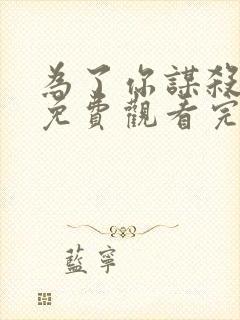 為了你謀殺
免費觀看完
藍寧